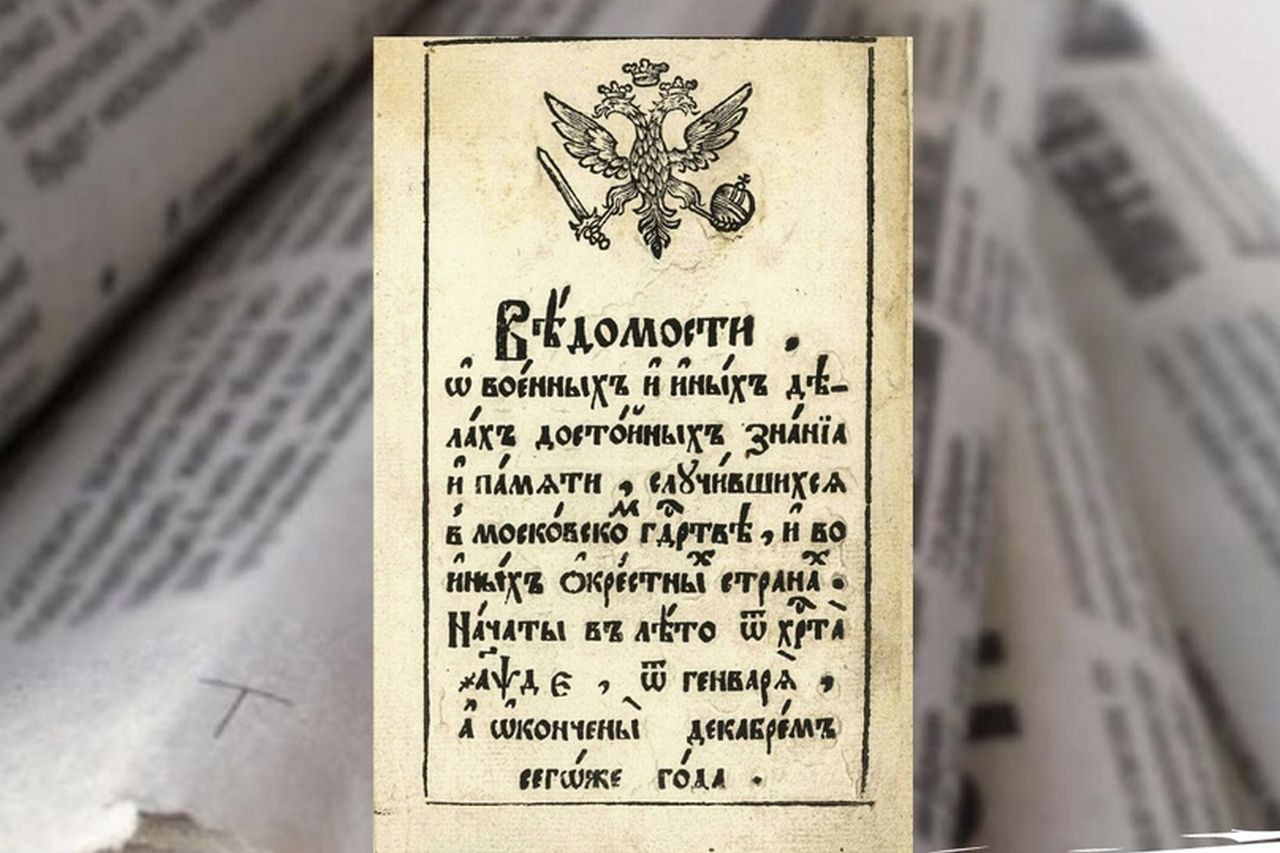 Вѣ́домости .
ѡ҆ вое́нныхъ и҆ и҆ны́хъ дѣ-
ла́хъ досто́йныхъ зна́нїѧ
и҆ па́мѧти , слꙋчи́вшихсѧ
в̾ моско́вскоⷨ гдⷭ҇ртвѣ , и҆ во
и҆ны́хъ ѻ҆кре́стныⷯ странаⷯ .
На́чаты въ лѣ́то ѿ хрⷭ҇та̀
҂а҃ѱд , ѿ генварѧ̀ ,
а҆ ѡ҆кончены̀ декабре́мъ
сегѡ́же го́да .